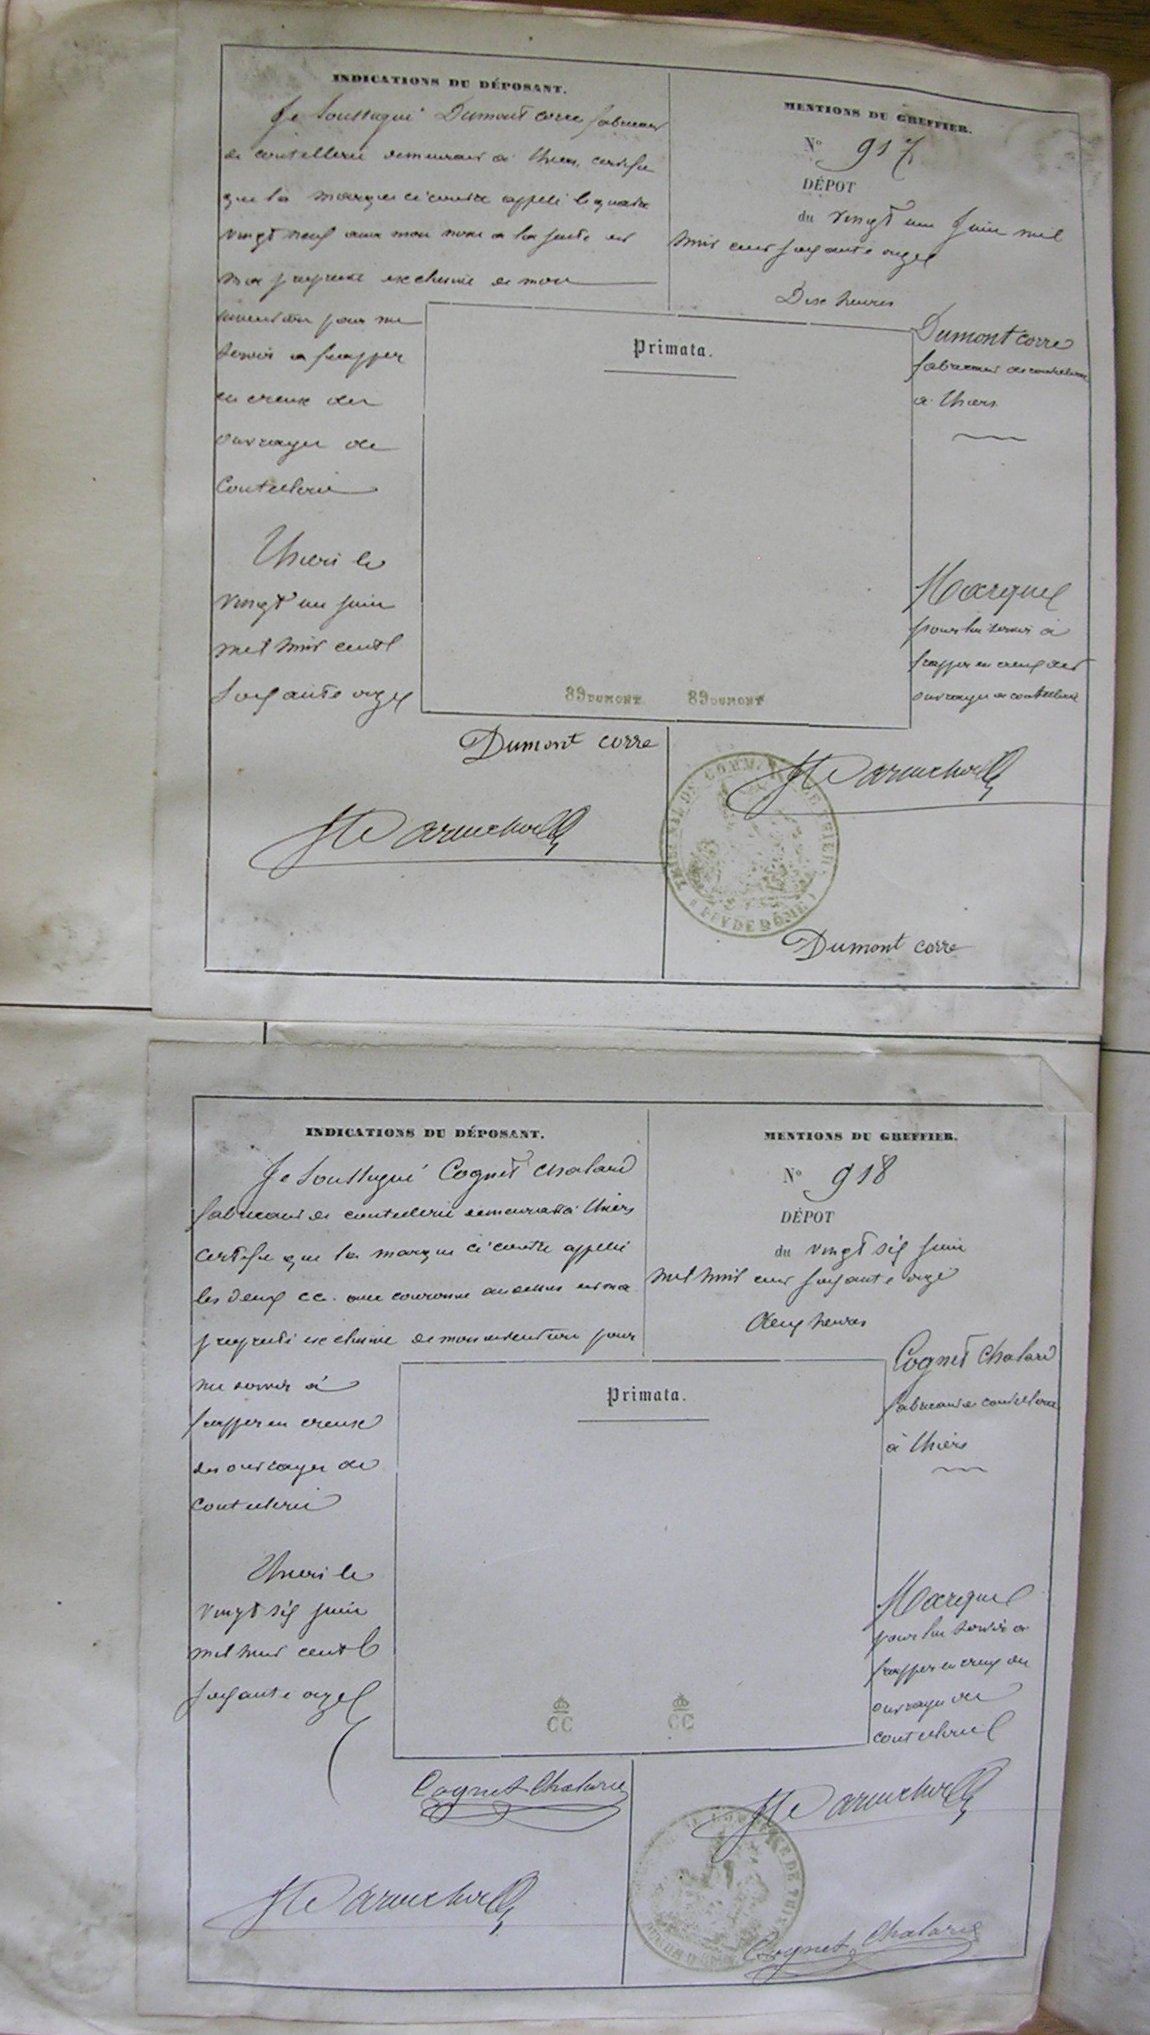 INDICATIONS DU DÉPOSANT.
Je soussigné Dumont corre fabricant
de coutellerie demeurant à Thiers certifie
que la marque ci contre appelé le quatre
vingt neuf avec mon nom a la suite est
ma propriété exclusive de mon
invention pour me
servir a frapper
en creux des
ouvrages de
Coutellerie
Thiers le
vingt un juin
mil huit cent
soixante onze
MENTIONS DU GREFFIER.
N° 917
DÉPOT
du vingt un Juin mil
huit cent soixante onze
Dix heures
Dumont corre
fabricant de coutellerie
a Thiers
Marque
pour lui servir à
frapper en creux des
ouvrages de coutellerie
Primata.
89 DUMONT 89 DUMONT
Dumont corre
TRIBUNAL DE COMMERCE DE THIERS
PUY DE DÔME
Dumont corre
INDICATIONS DU DÉPOSANT.
Je soussigné Cognet Chalard
fabricant de coutellerie demeurant à Thiers
certifie que la marque ci contre appelé
les deux CC. une couronne au dessus est ma
propriété exclusive de mon invention pour
me servir à
frapper en creux
des ouvrages de
coutellerie
Thiers le
vingt six juin
mil huit cent
soixante onze
MENTIONS DU GREFFIER.
N° 918
DÉPOT
du vingt six juin
mil huit cent soixante onze
deux heures
Cognet Chalard
fabricant de coutellerie
à Thiers
Marque
pour lui servir a
frapper en creux des
ouvrages de
coutellerie
Primata.
CC CC
Cognet Chalard
Cognet Chalard